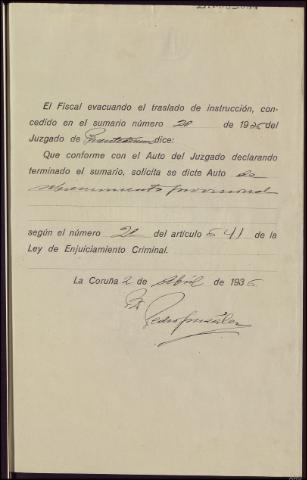 El Fiscal evacuando el traslado de instrucción, con-
cedido en el sumario número 20 de 1935 del
Juzgado de dice:
Que conforme con el Auto del Juzgado declarando
terminado el sumario, solicita se dicte Auto de
sobreseimiento provisional
según el número 2º del artículo 641 de la
Ley de Enjuiciamiento Criminal.
La Coruña 2 de Abril de 1936
Pedro